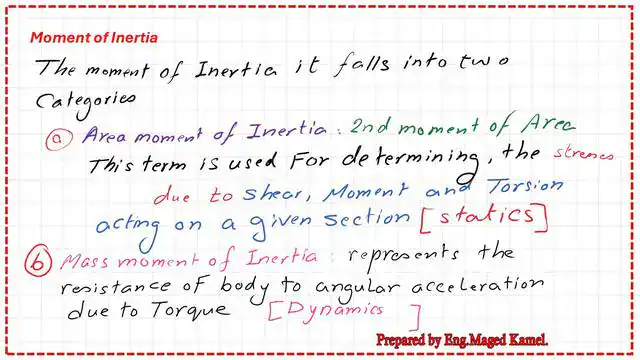 Moment of Inertia
The moment of Inertia it falls into two
Categories
(a) Area moment of Inertia : 2nd moment of Area
This term is used For determining, the stresses
due to shear, Moment and Torsion
acting on a given section [statics]
(b) Mass moment of Inertia : represents the
resistance of body to angular acceleration
due to Torque [Dynamics ]
Prepared by Eng.Maged Kamel.